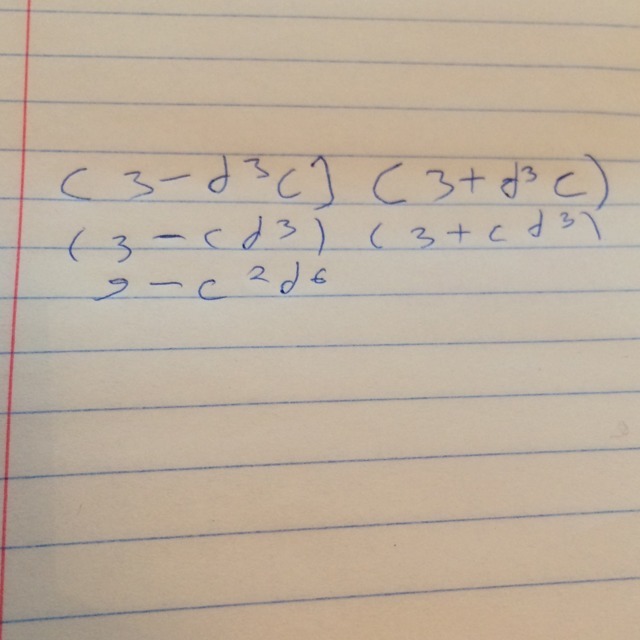 (3-d³c) (3+d³c)
(3-cd³) (3+cd³)
9-c²d⁶